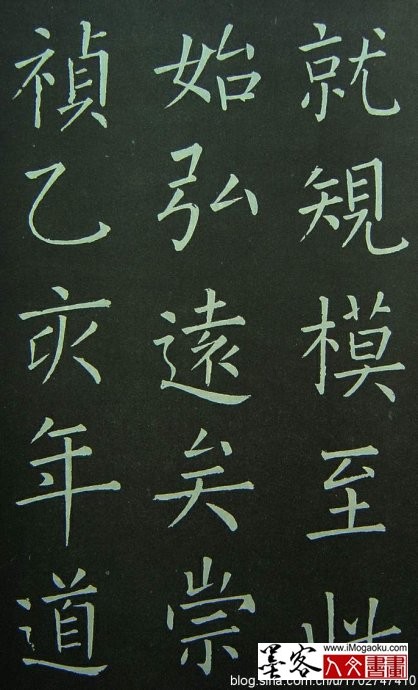 就䂓模至此
始弘遠矣崇
禎乙亥年道
墨客
www.iMogaoku.com
人文書畫
blog.sina.com.cn/u/1702747410